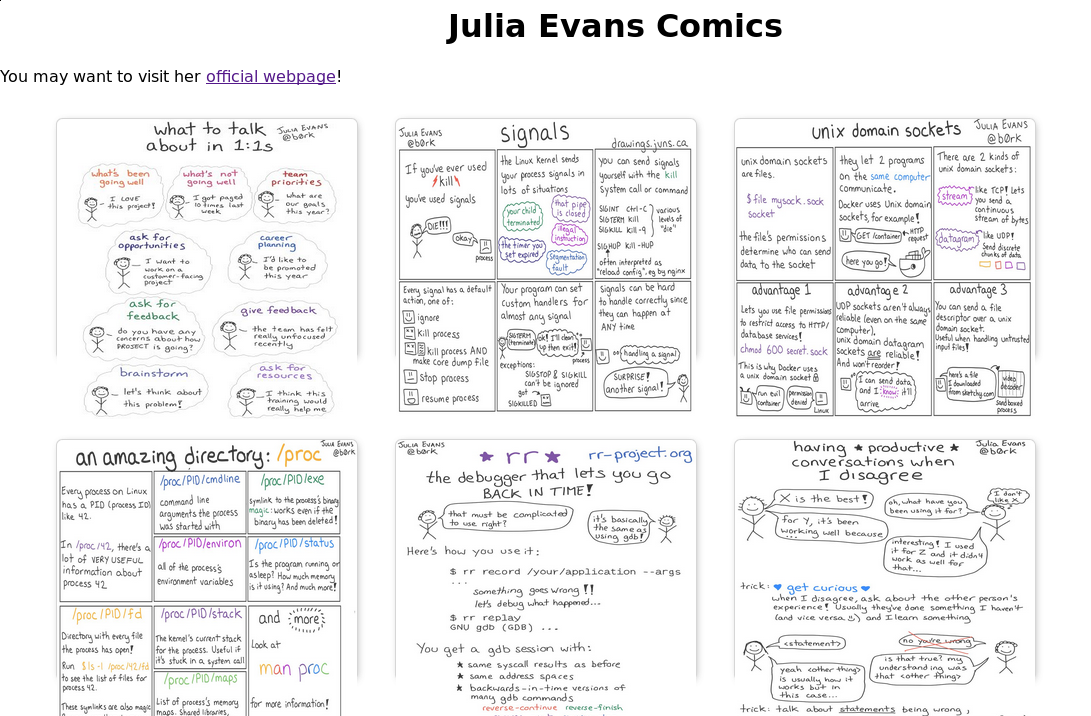 Julia Evans Comics
You may want to visit her official webpage!
what to talk
about in 1:1s
JULIA EVANS
@b0rk
what's been
going well
I LOVE
this project!
what's not
going well
I got paged
10 times last
week
team
priorities
what are
our goals
this year?
ask for
opportunities
I want to
work on a
customer-facing
project
career
planning
I'd like to
be promoted
this year
ask for
feedback
do you have any
concerns about how
PROJECT is going?
give feedback
the team has felt
really unfocused
recently
brainstorm
let's think about
this problem!
ask for
resources
I think this
training would
really help me
JULIA EVANS
@b0rk
signals
drawings.jvns.ca
If you've ever used
kill
you've used signals
DIE!!!
okay
process
the Linux Kernel sends
your process signals in
lots of situations
your child
terminated
that pipe
is closed
illegal
instruction
the timer you
set expired
Segmentation
fault
you can send signals
yourself with the kill
system call or command
SIGINT Ctrl-C
SIGTERM kill
SIGKILL kill -9
various
levels of
"die"
SIGHUP kill -HUP
often interpreted as
"reload config", eg by nginx
Every signal has a default
action, one of:
ignore
kill process
kill process AND
make core dump file
stop process
resume process
Your program can set
custom handlers for
almost any signal
SIGTERM
(terminate)
ok! I'll clean
up then exit!
process
exceptions:
SIGSTOP & SIGKILL
can't be ignored
got
SIGKILLED
Signals can be hard
to handle correctly since
they can happen at
ANY time
handling a signal
SURPRISE!
another signal!
unix domain sockets
JULIA EVANS
@b0rk
unix domain sockets
are files.
$ file mysock.sock
socket
the file's permissions
determine who can send
data to the socket
they let 2 programs
on the same computer
communicate.
Docker uses Unix domain
sockets, for example!
GET /container
HTTP
request
here you go!
There are 2 kinds of
unix domain sockets:
stream
like TCP! Lets
you send a
continuous
stream of bytes
datagram
like UDP!
Send discrete
chunks of data
advantage 1
Lets you use file permissions
to restrict access to HTTP/
database services!
chmod 600 secret.sock
This is why Docker uses
a unix domain socket
run evil
container
permission
denied
Linux
advantage 2
UDP sockets aren't always
reliable (even on the same
computer).
unix domain datagram
sockets are reliable!
And won't reorder!
I can send data
and I know it'll
arrive
advantage 3
You can send a file
descriptor over a unix
domain socket.
Useful when handling untrusted
input files!
here's a file
I downloaded
from sketchy.com
video
decoder
sandboxed
process
an amazing directory: /proc
JULIA EVANS
@b0rk
Every process on Linux
has a PID (process ID)
like 42.
In /proc/42, there's a
lot of VERY USEFUL
information about
process 42
/proc/PID/cmdline
command line
arguments the process
was started with
/proc/PID/exe
symlink to the process's binary
magic: works even if the
binary has been deleted!
/proc/PID/environ
all of the process's
environment variables
/proc/PID/status
Is the program running or
asleep? How much memory
is it using? And much more!
/proc/PID/fd
Directory with every file
the process has open!
Run $ ls -l /proc/42/fd
to see the list of files for
process 42.
These symlinks are also magic
/proc/PID/stack
The kernel's current stack
for the process. Useful if
it's stuck in a system call
/proc/PID/maps
List of process's memory
maps. Shared libraries,
and more
Look at
man proc
for more information!
JULIA EVANS
@b0rk
rr
rr-project.org
the debugger that lets you go
BACK IN TIME!
that must be complicated
to use right?
it's basically
the same as
using gdb!
Here's how you use it:
$ rr record /your/application --args
...
something goes wrong!!
let's debug what happened...
$ rr replay
GNU gdb (GDB) ...
You get a gdb session with:
★ same syscall results as before
★ same address spaces
★ backwards-in-time versions of
many gdb commands
reverse-continue reverse-finish
having ★ productive ★
conversations when
I disagree
JULIA EVANS
@b0rk
X is the best!
oh, what have you
been using it for?
I don't
like X
for Y, it's been
working well because
...
interesting! I used
it for Z and it didn't
work as well for
that...
trick: ♥ get curious ♥
when I disagree, ask about the other person's
experience! Usually they've done something I haven't
(and vice versa) and I learn something
<statement>
no you're wrong
yeah <other thing>
is usually how it
works but in
this case...
is that true? my
understanding was
that <other thing>
trick: talk about statements being wrong,